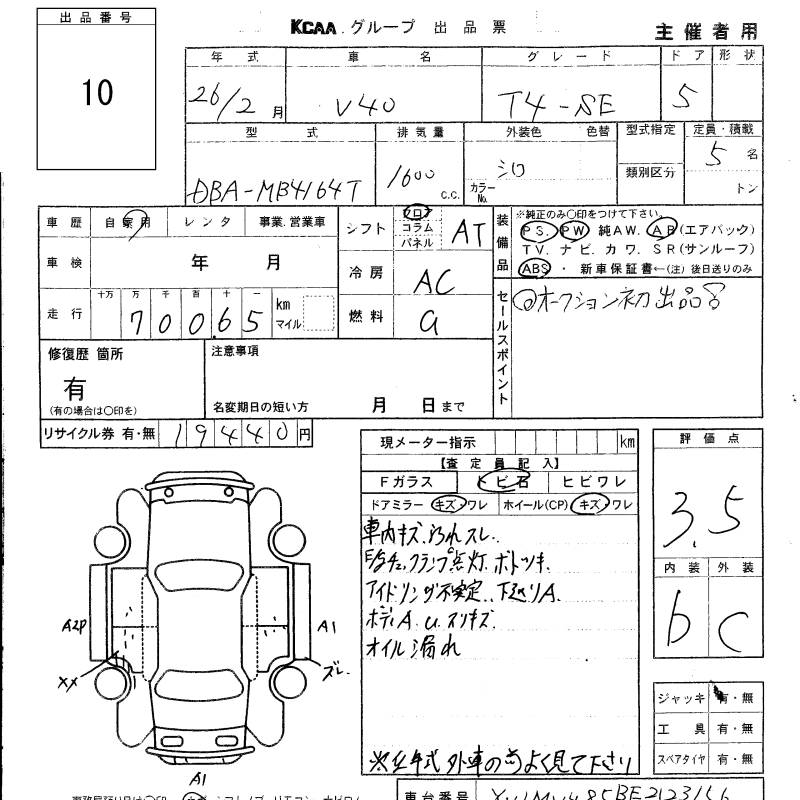 出品番号
10
KCAA グループ 出品票
主催者用
年式 車名 グレード ドア 形状
26/2月 V40 T4-SE 5
型式 排気量 外装色 色替 型式指定 定員・積載
DBA-MB4164T 1600 c.c. シロ カラーNo. 類別区分 5名 トン
車歴 自家用 レンタ 事業.営業車
車検 年 月
走行 十万 万 千 百 十 一 km マイル
70065
シフト フロ コラム パネル AT
冷房 AC
燃料 G
装備品
※純正のみ○印をつけて下さい。
PS. PW 純AW. AB(エアバック)
TV. ナビ. カワ. SR(サンルーフ)
ABS ・ 新車保証書←(注) 後日送りのみ
セールスポイント
オークション初出品
修復歴 箇所
有
(有の場合は○印を)
注意事項
名変期日の短い方 月 日まで
リサイクル券 有・無 19440円
現メーター指示 km
【査定員記入】
Fガラス トビ石 ヒビワレ
ドアミラー キズ・ワレ ホイール(CP) キズ・ワレ
車内キズ.汚れスレ.
ランプ点灯.
アイドリング不安定. 下廻りA.
ボディA.U.スリキズ.
オイル漏れ
外車の
よく見て下さい
評価点
3.5
内装 外装
b C
ジャッキ 有・無
工具 有・無
スペアタイヤ 有・無
A2P
A1
XX
ズレ.
A1
車台番号